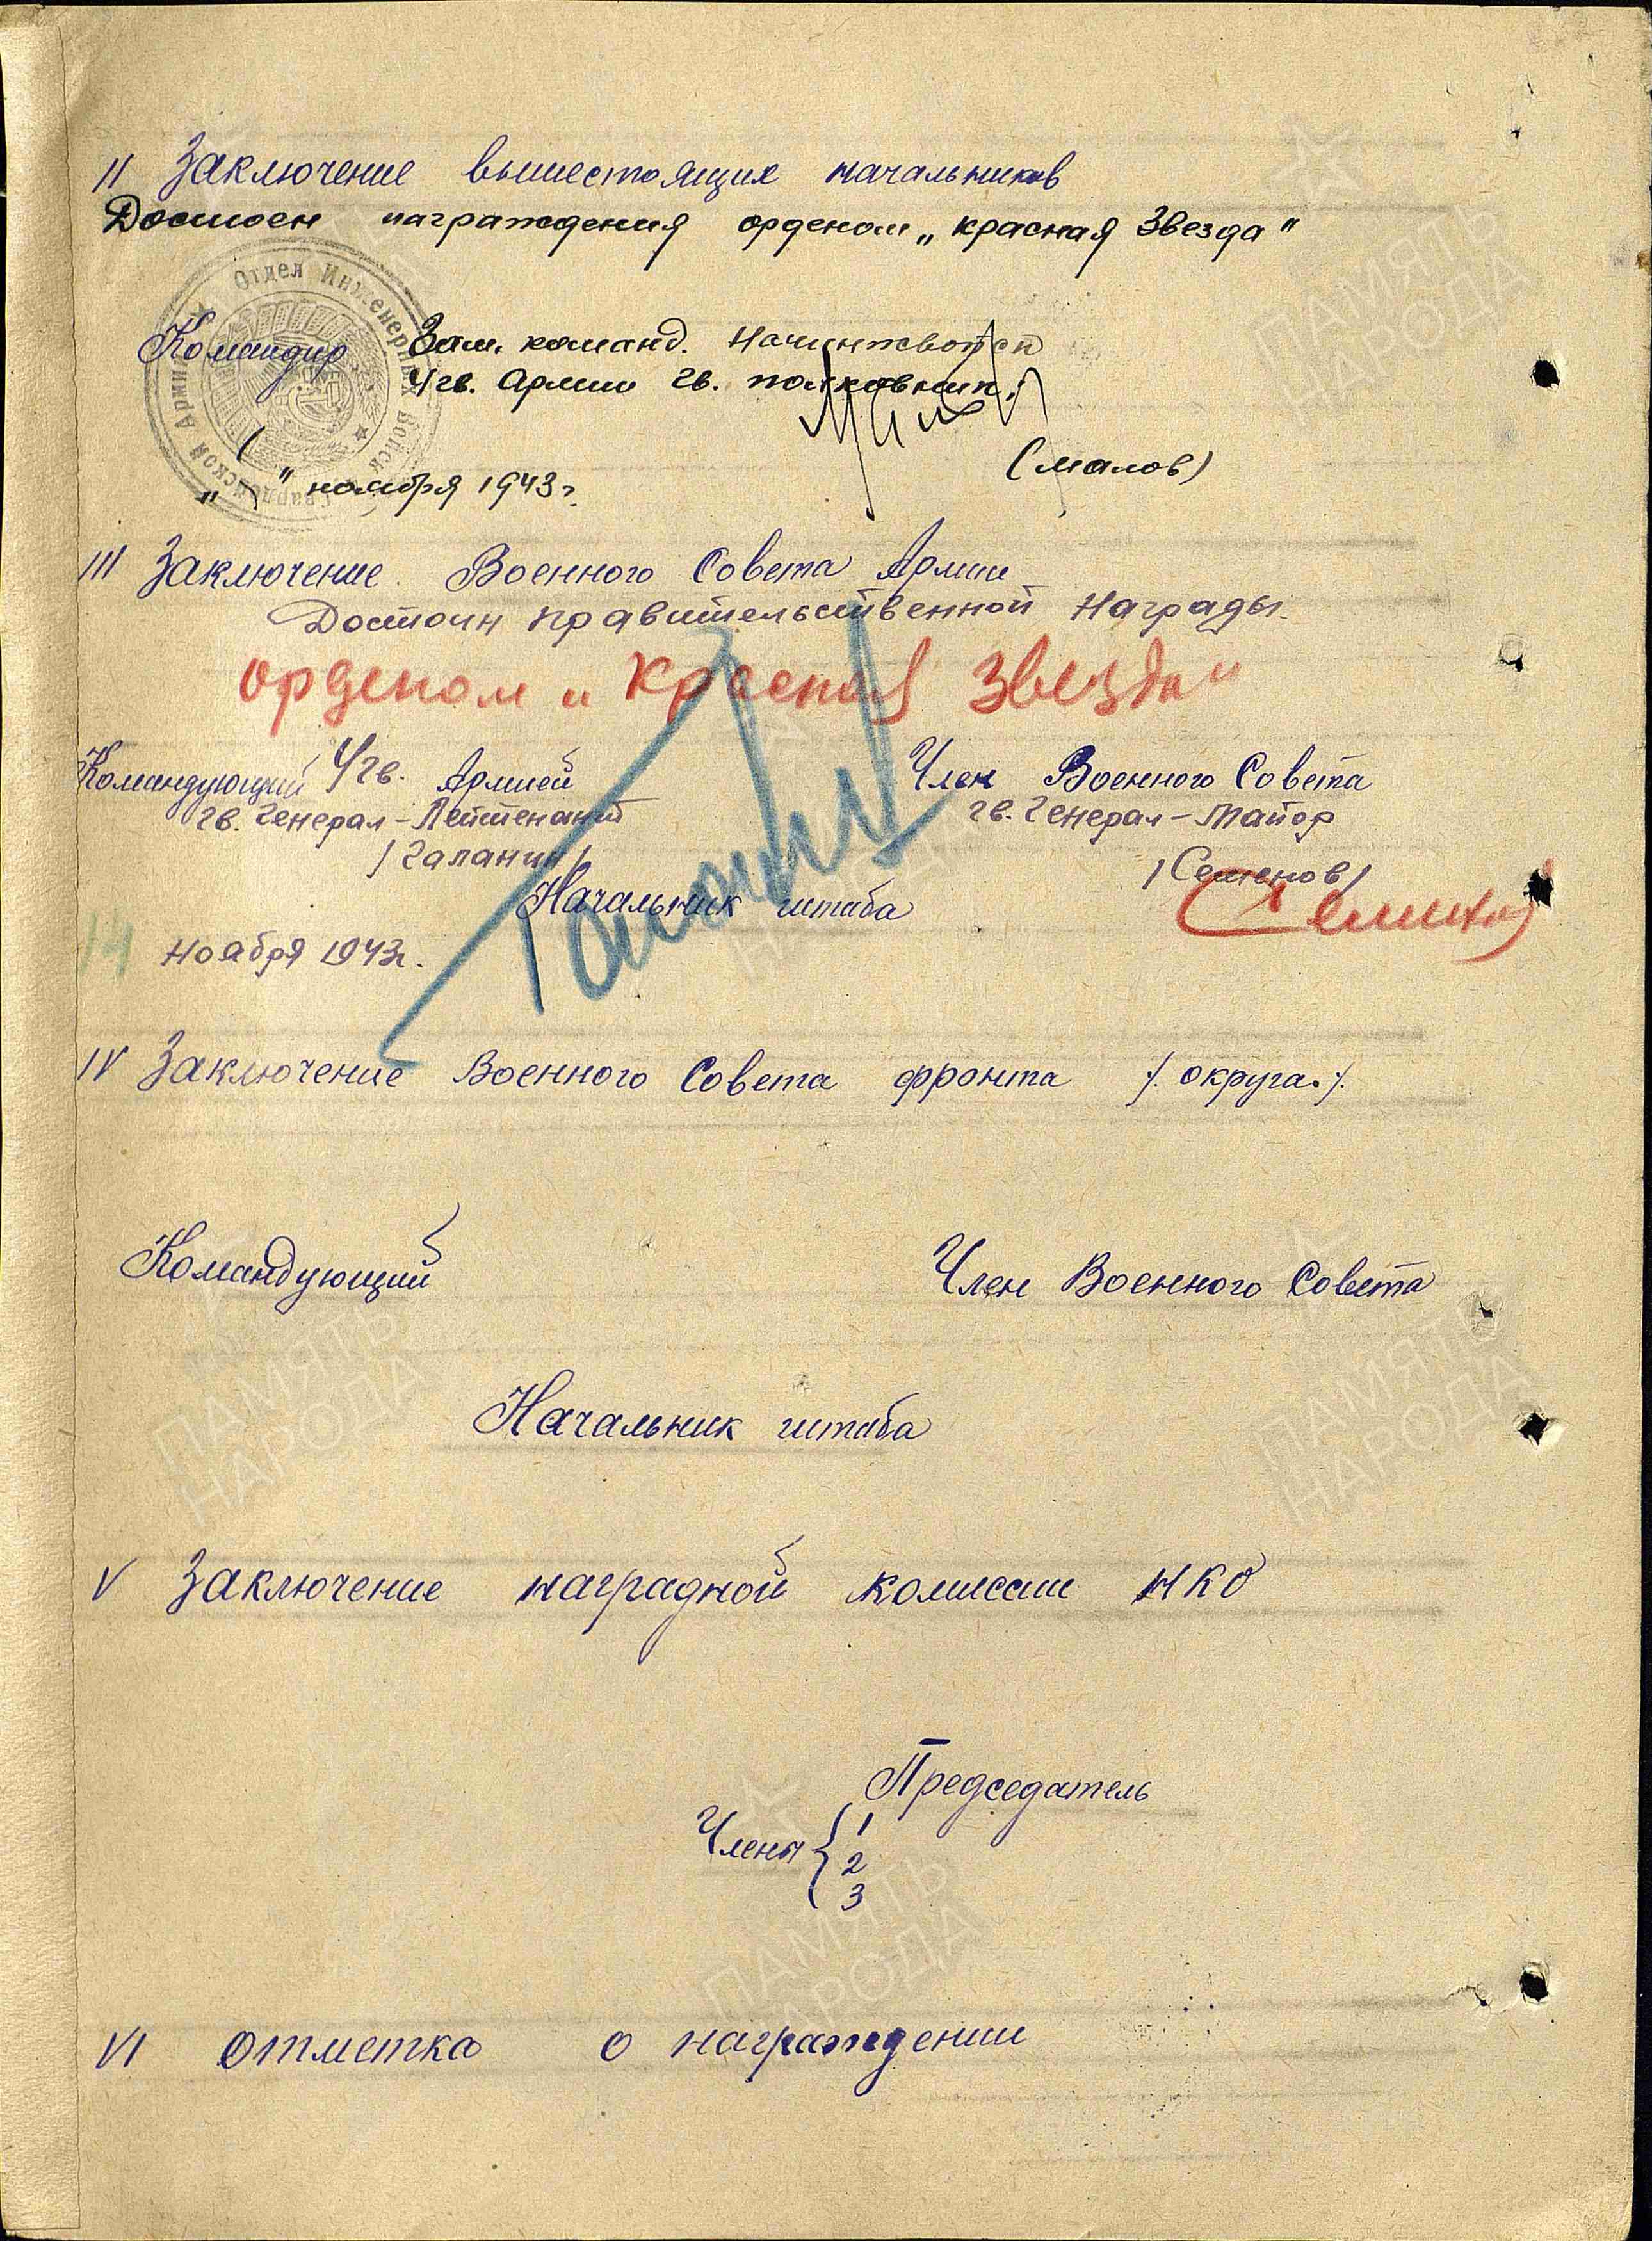 II Заключение вышестоящих начальников
Достоен награждения орденом „красная Звезда"
Отдел Инженерных Войск Гвардейской Армии
Командир Зам. команд. Начинжвойск
4 гв. Армии гв. полковник
(малов)
" " ноября 1943 г.
III Заключение Военного Совета Армии
Достоин правительственной Награды
орденом „Красная Звезда"
Командующий 4 гв. Армией
гв. Генерал-Лейтенант
/Галанин/
Член Военного Совета
гв. Генерал-Майор
/Семенов/
Начальник штаба
14 ноября 1943 г.
IV Заключение Военного Совета фронта /. округа. /.
Командующий
Член Военного Совета
Начальник штаба
V Заключение наградной комиссии НКО
Председатель
Члены { 1
2
3
VI Отметка о награждении
ПАМЯТЬ
НАРОДА